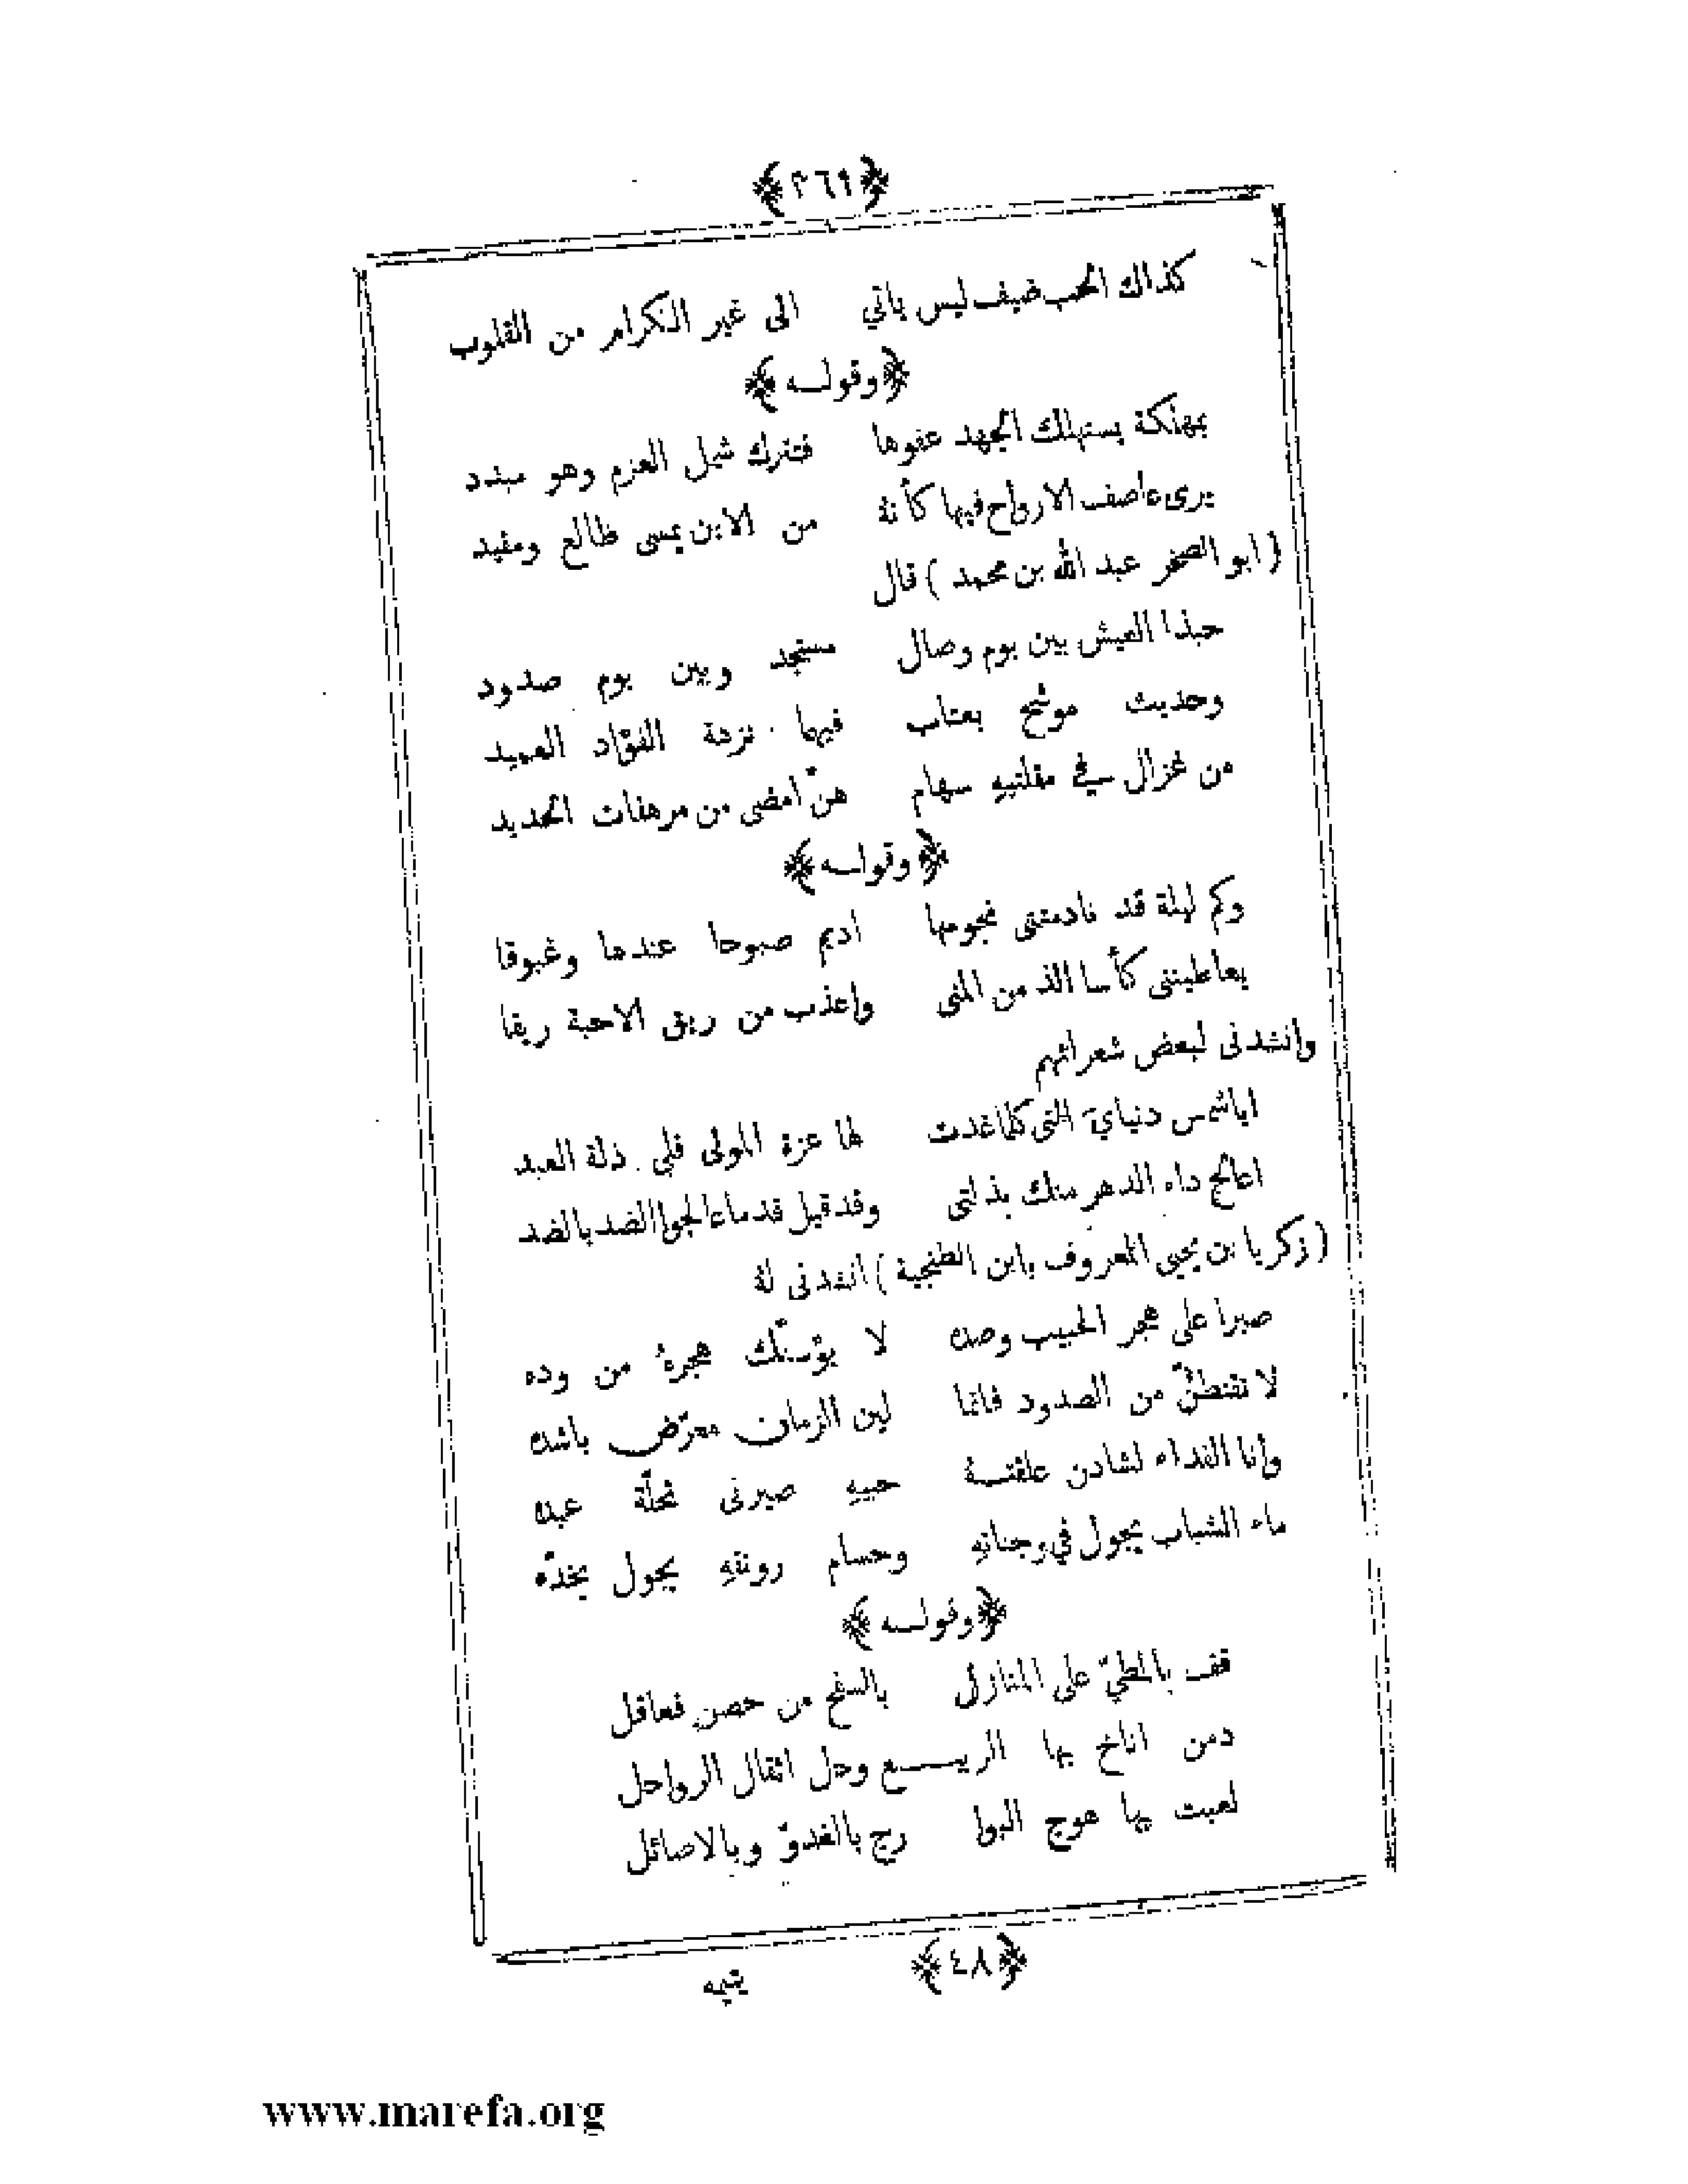 ﴿٣٦٩﴾
كذاك الحب ضيف ليس ياتي الى غير الكرام من القلوب
﴿وقوله﴾
بمهلكة يستهلك الجهد عفوها فتترك شمل العزم وهو مبدد
يرى عاصف الارواح فيها كأنهُ من الاين يمسى ظالع ومقيد
(ابو الصخر عبد الله بن محمد) قال
حبذا العيش بين يوم وصال مستجد وبين يوم صدود
وحديث موشح بعتاب فيهما نزهة الفؤاد العميد
من غزال في مقلتيهِ سهام هنّ امضى من مرهفات الحديد
﴿وقوله﴾
وكم ليلة قد نادمتنى نجومها اديم صبوحا عندها وغبوقا
يعاطيننى كأسا الذ من المنى واعذب من ريق الاحبة ريقا
وانشدنى لبعض شعرائهم
اياشمس دنيايَ التى كلما غدت لها عزة المولى فلي ذلة العبد
اعالج داء الدهر منك بذلتى وقد قيل قدماء الجوا الضد بالضد
(زكريا بن يحيى المعروف بابن الطنجية) انشدنى لهُ
صبرا على هجر الحبيب وصده لا يؤيسنّك هجرهُ من وده
لا تقنطنّ من الصدود فانما لين الزمان معرّض باشده
وانا الفداء لشادن علقتهُ حبيهِ صيرنى محلّة عبده
ماء الشباب يجول في وجناتهِ وحسام رونقهِ يجول بخدّه
﴿وقوله﴾
قف بالمطيّ على المنازل بالسفح من حصن فعاقل
دمن اناخ بها الربيـــع وحل اثقال الرواحل
لعبت بها هوج البوا رح بالغدوّ وبالاصائل
﴿٤٨﴾
يتيمه
www.marefa.org